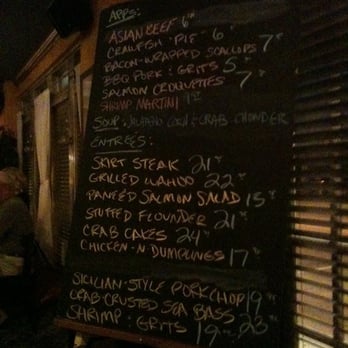 APPS:
ASIAN BEEF 6
CRAWFISH "PIE" 6
BACON-WRAPPED SCALLOPS 7
BBQ PORK : GRITS 5
SALMON CROQUETTES 7
SHRIMP MARTINI
SOUP: JALAPEÑO CORN & CRAB CHOWDER
ENTREES:
SKIRT STEAK 21
GRILLED WAHOO 22
PANÉED SALMON SALAD 15
STUFFED FLOUNDER 21
CRAB CAKES 24
CHICKEN-N-DUMPLINGS 17
SICILIAN-STYLE PORKCHOP 19
CRAB-CRUSTED SEA BASS 23
SHRIMP : GRITS 19